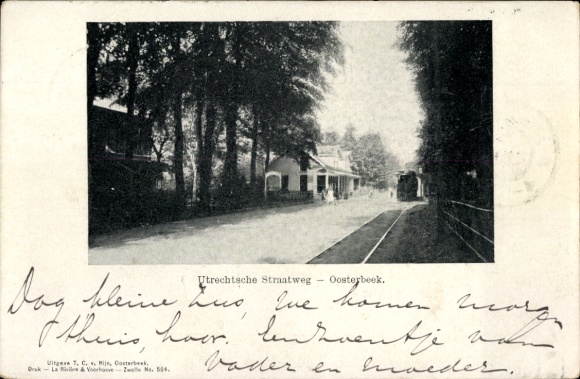 Utrechtsche Straatweg – Oosterbeek.
Dag kleine Zus, we komen morgen
thuis, hoor. Een zoentje van
Vader en Moeder.
Uitgave T. C. v. Rijn, Oosterbeek.
Druk – La Rivière & Voorhoeve – Zwolle No. 554.